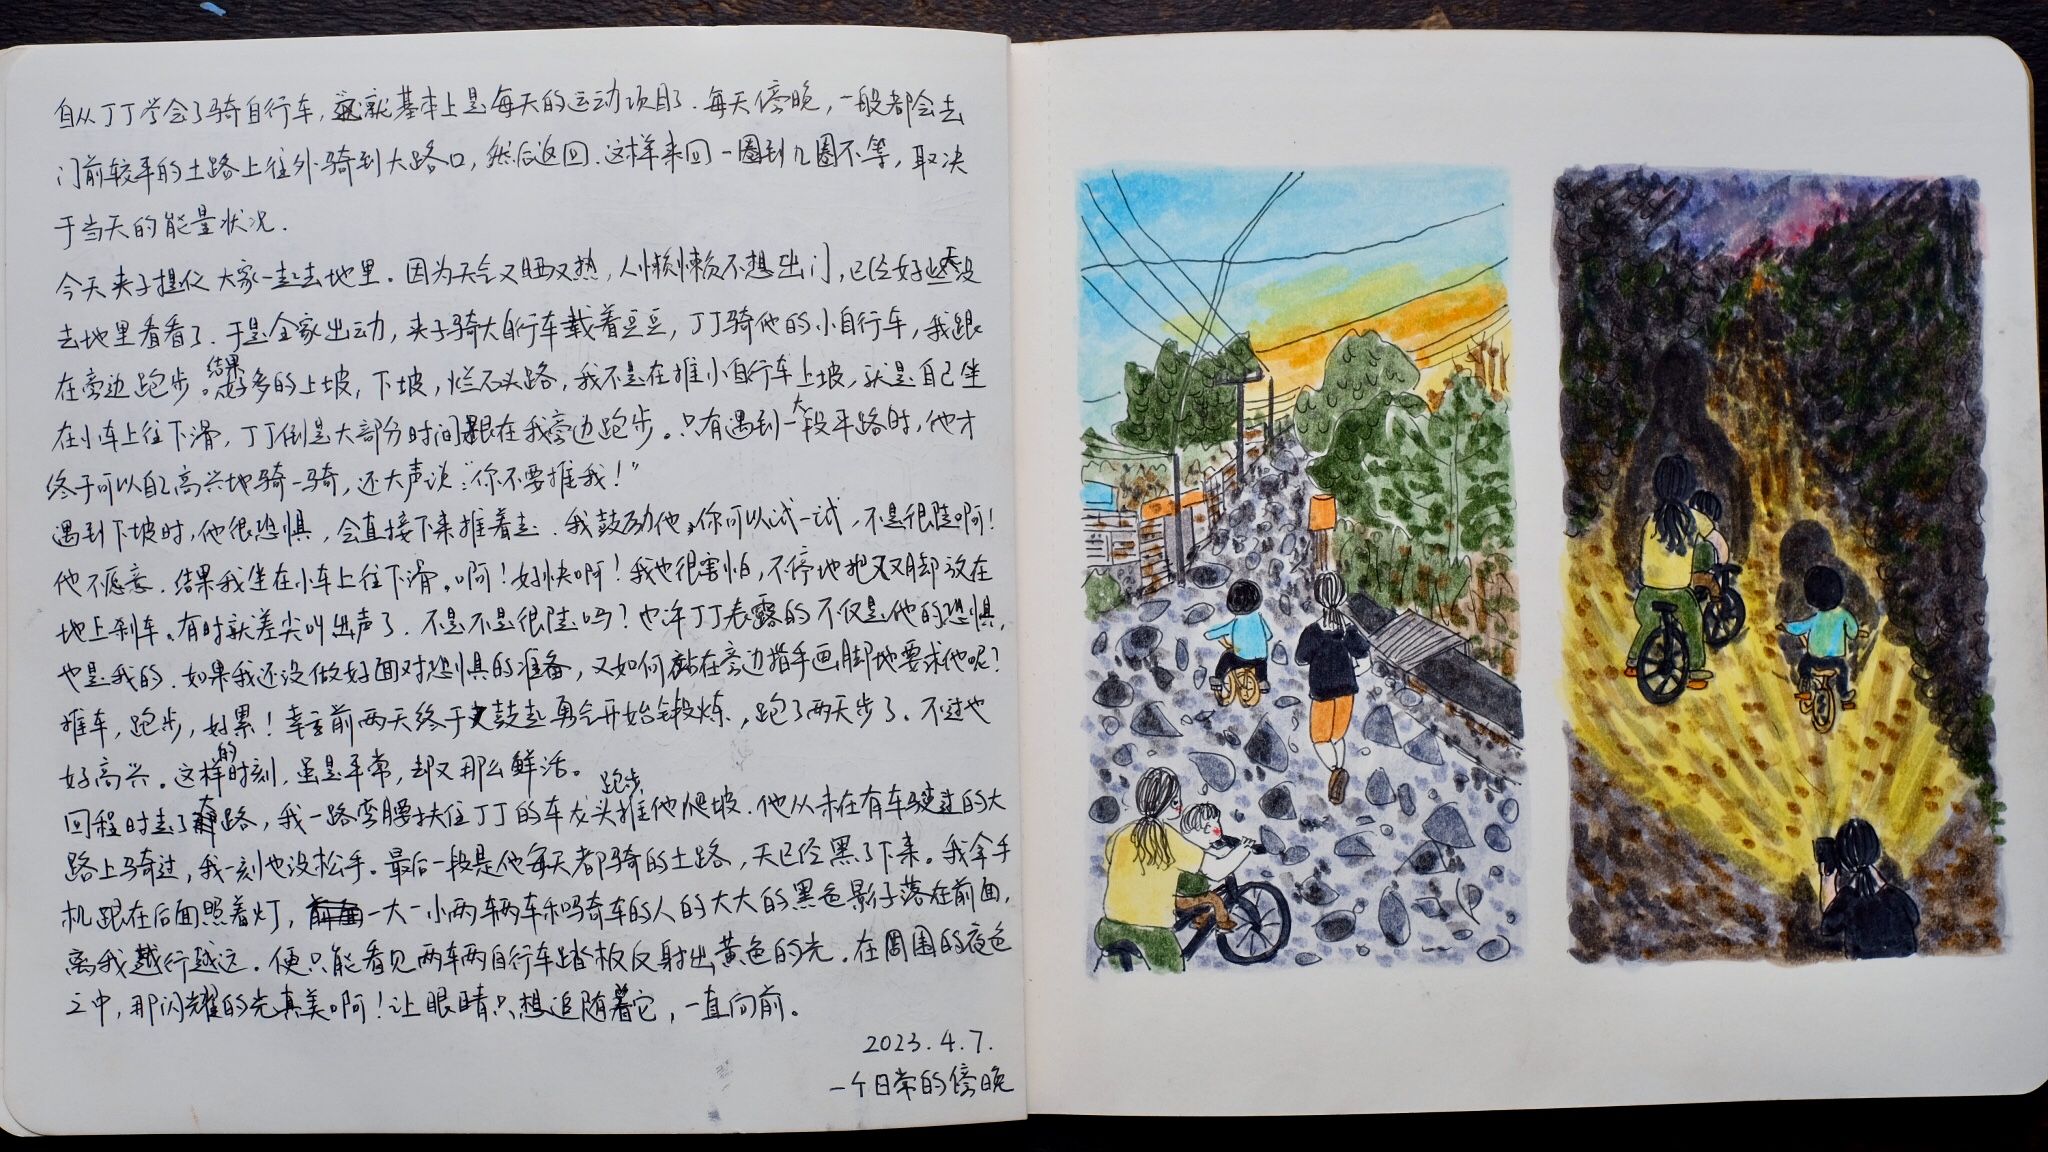 自从丁丁学会了骑自行车，就基本上是每天的运动项目了。每天傍晚，一般都会去
门前较平的土路上往外骑到大路口，然后返回。这样来回一圈到几圈不等，取决
于当天的能量状况．
今天夹子提议大家一起去地里。因为天气又晒又热，人懒懒不想出门，已经好些天没
去地里看看了．于是全家出动，夹子骑大自行车载着豆豆，丁丁骑他的小自行车，我跟
在旁边跑步。结果好多的上坡，下坡，烂石头路，我不是在推小自行车上坡，就是自己坐
在小车上往下滑，丁丁倒是大部分时间跟在我旁边跑步。只有遇到一大段平路时，他才
终于可以自己高兴地骑一骑，还大声说：“你不要推我！”
遇到下坡时，他很恐惧，会直接下来推着走．我鼓励他，你可以试一试，不是很陡啊！
他不愿意．结果我坐在小车上往下滑。啊！好快啊！我也很害怕，不停地把双脚放在
地上刹车。有时就差尖叫出声了．不是不是很陡吗？也许丁丁表露的不仅是他的恐惧，
也是我的．如果我还没做好面对恐惧的准备，又如何站在旁边指手画脚地要求他呢？
推车，跑步，好累！幸亏前两天终于鼓起勇气开始锻炼，跑了两天步了．不过也
好高兴。这样的时刻，虽是平常，却又那么鲜活。
回程时走了大路，我一路弯腰扶住丁丁的车龙头跑步推他爬坡．他从未在有车驶过的大
路上骑过，我一刻也没松手。最后一段是他每天都骑的土路，天已经黑了下来。我拿手
机跟在后面照着灯，一大一小两辆车和骑车的人的大大的黑色影子落在前面，
离我越行越远．便只能看见两车两自行车踏板反射出黄色的光．在周围的夜色
之中，那闪耀的光真美啊！让眼睛只想追随着它，一直向前。
2023.4.7.
一个日常的傍晚